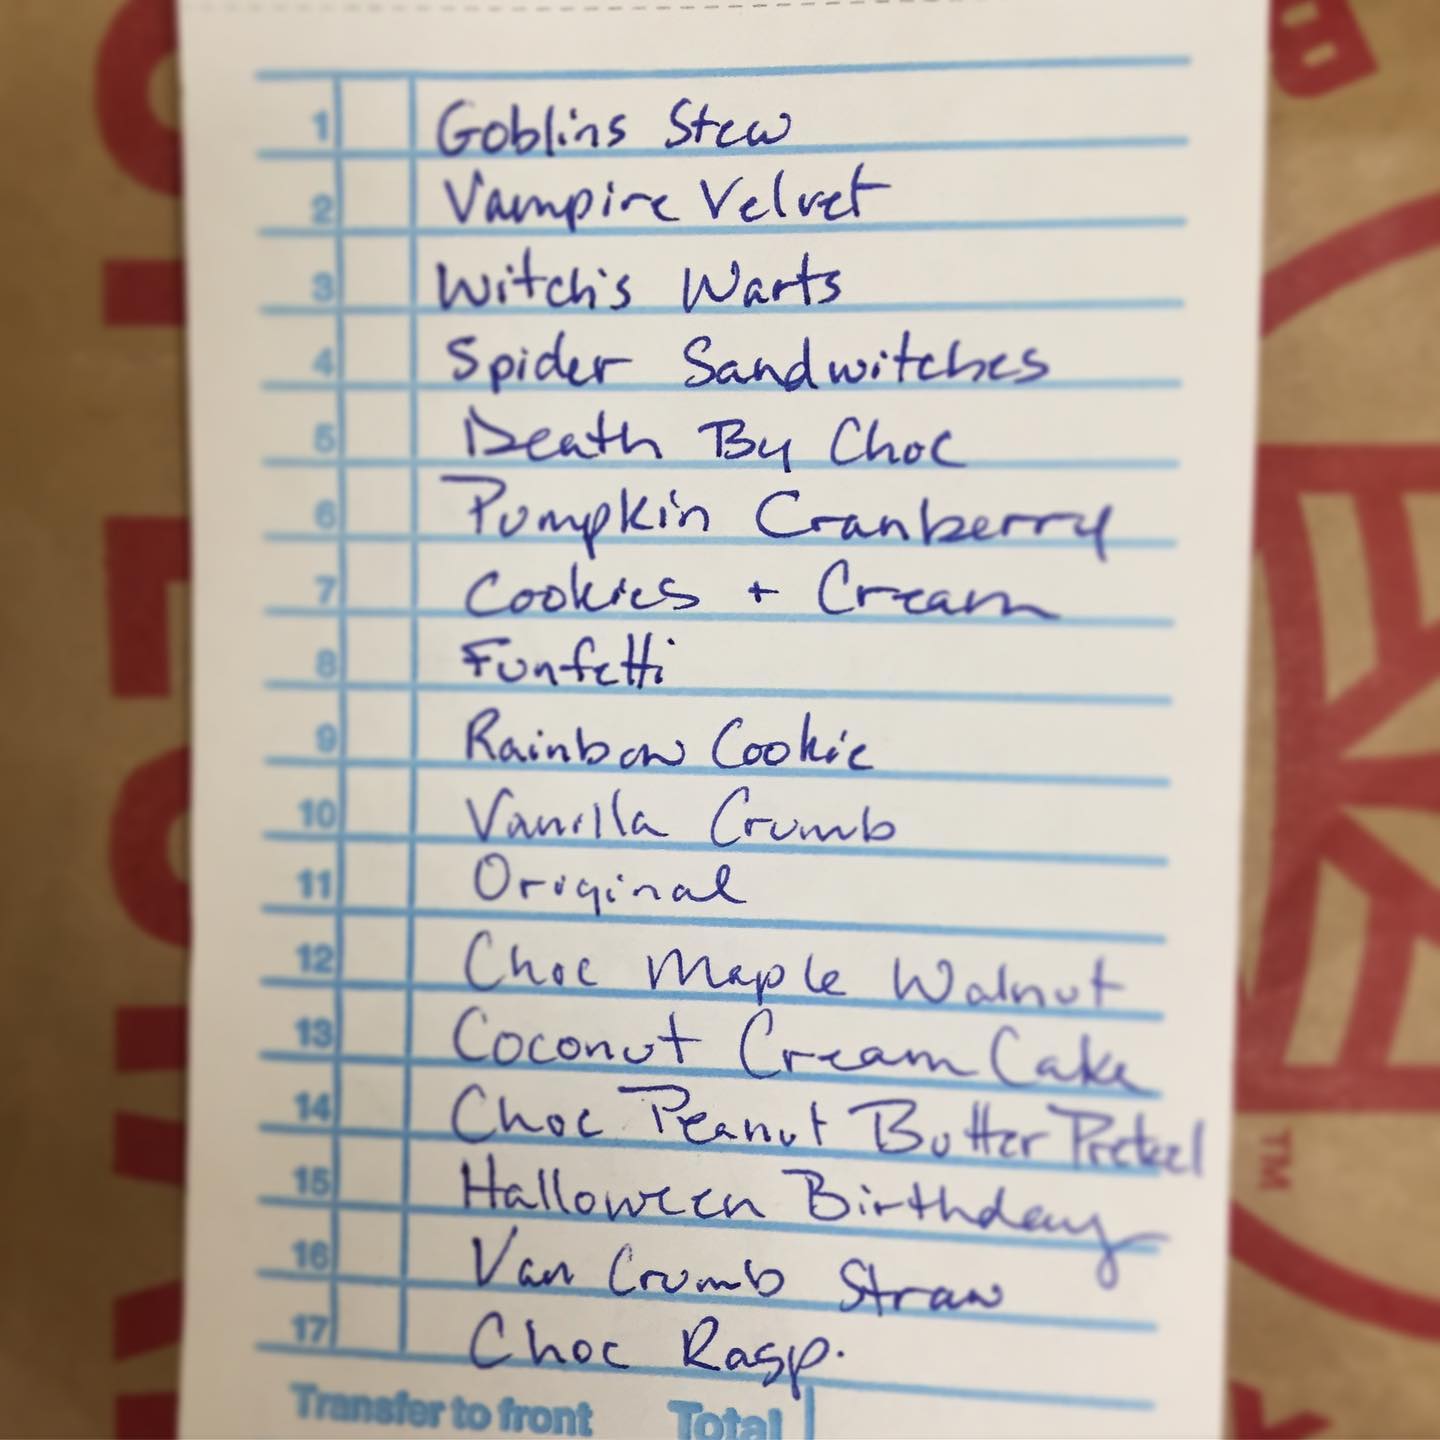 1 Goblins Stew
2 Vampire Velvet
3 Witch's Warts
4 Spider Sandwitches
5 Death By Choc
6 Pumpkin Cranberry
7 Cookies + Cream
8 Funfetti
9 Rainbow Cookie
10 Vanilla Crumb
11 Original
12 Choc Maple Walnut
13 Coconut Cream Cake
14 Choc Peanut Butter Pretzel
TM
15 Halloween Birthday
16 Van Crumb Straw
17 Choc Rasp.
Transfer to front Total